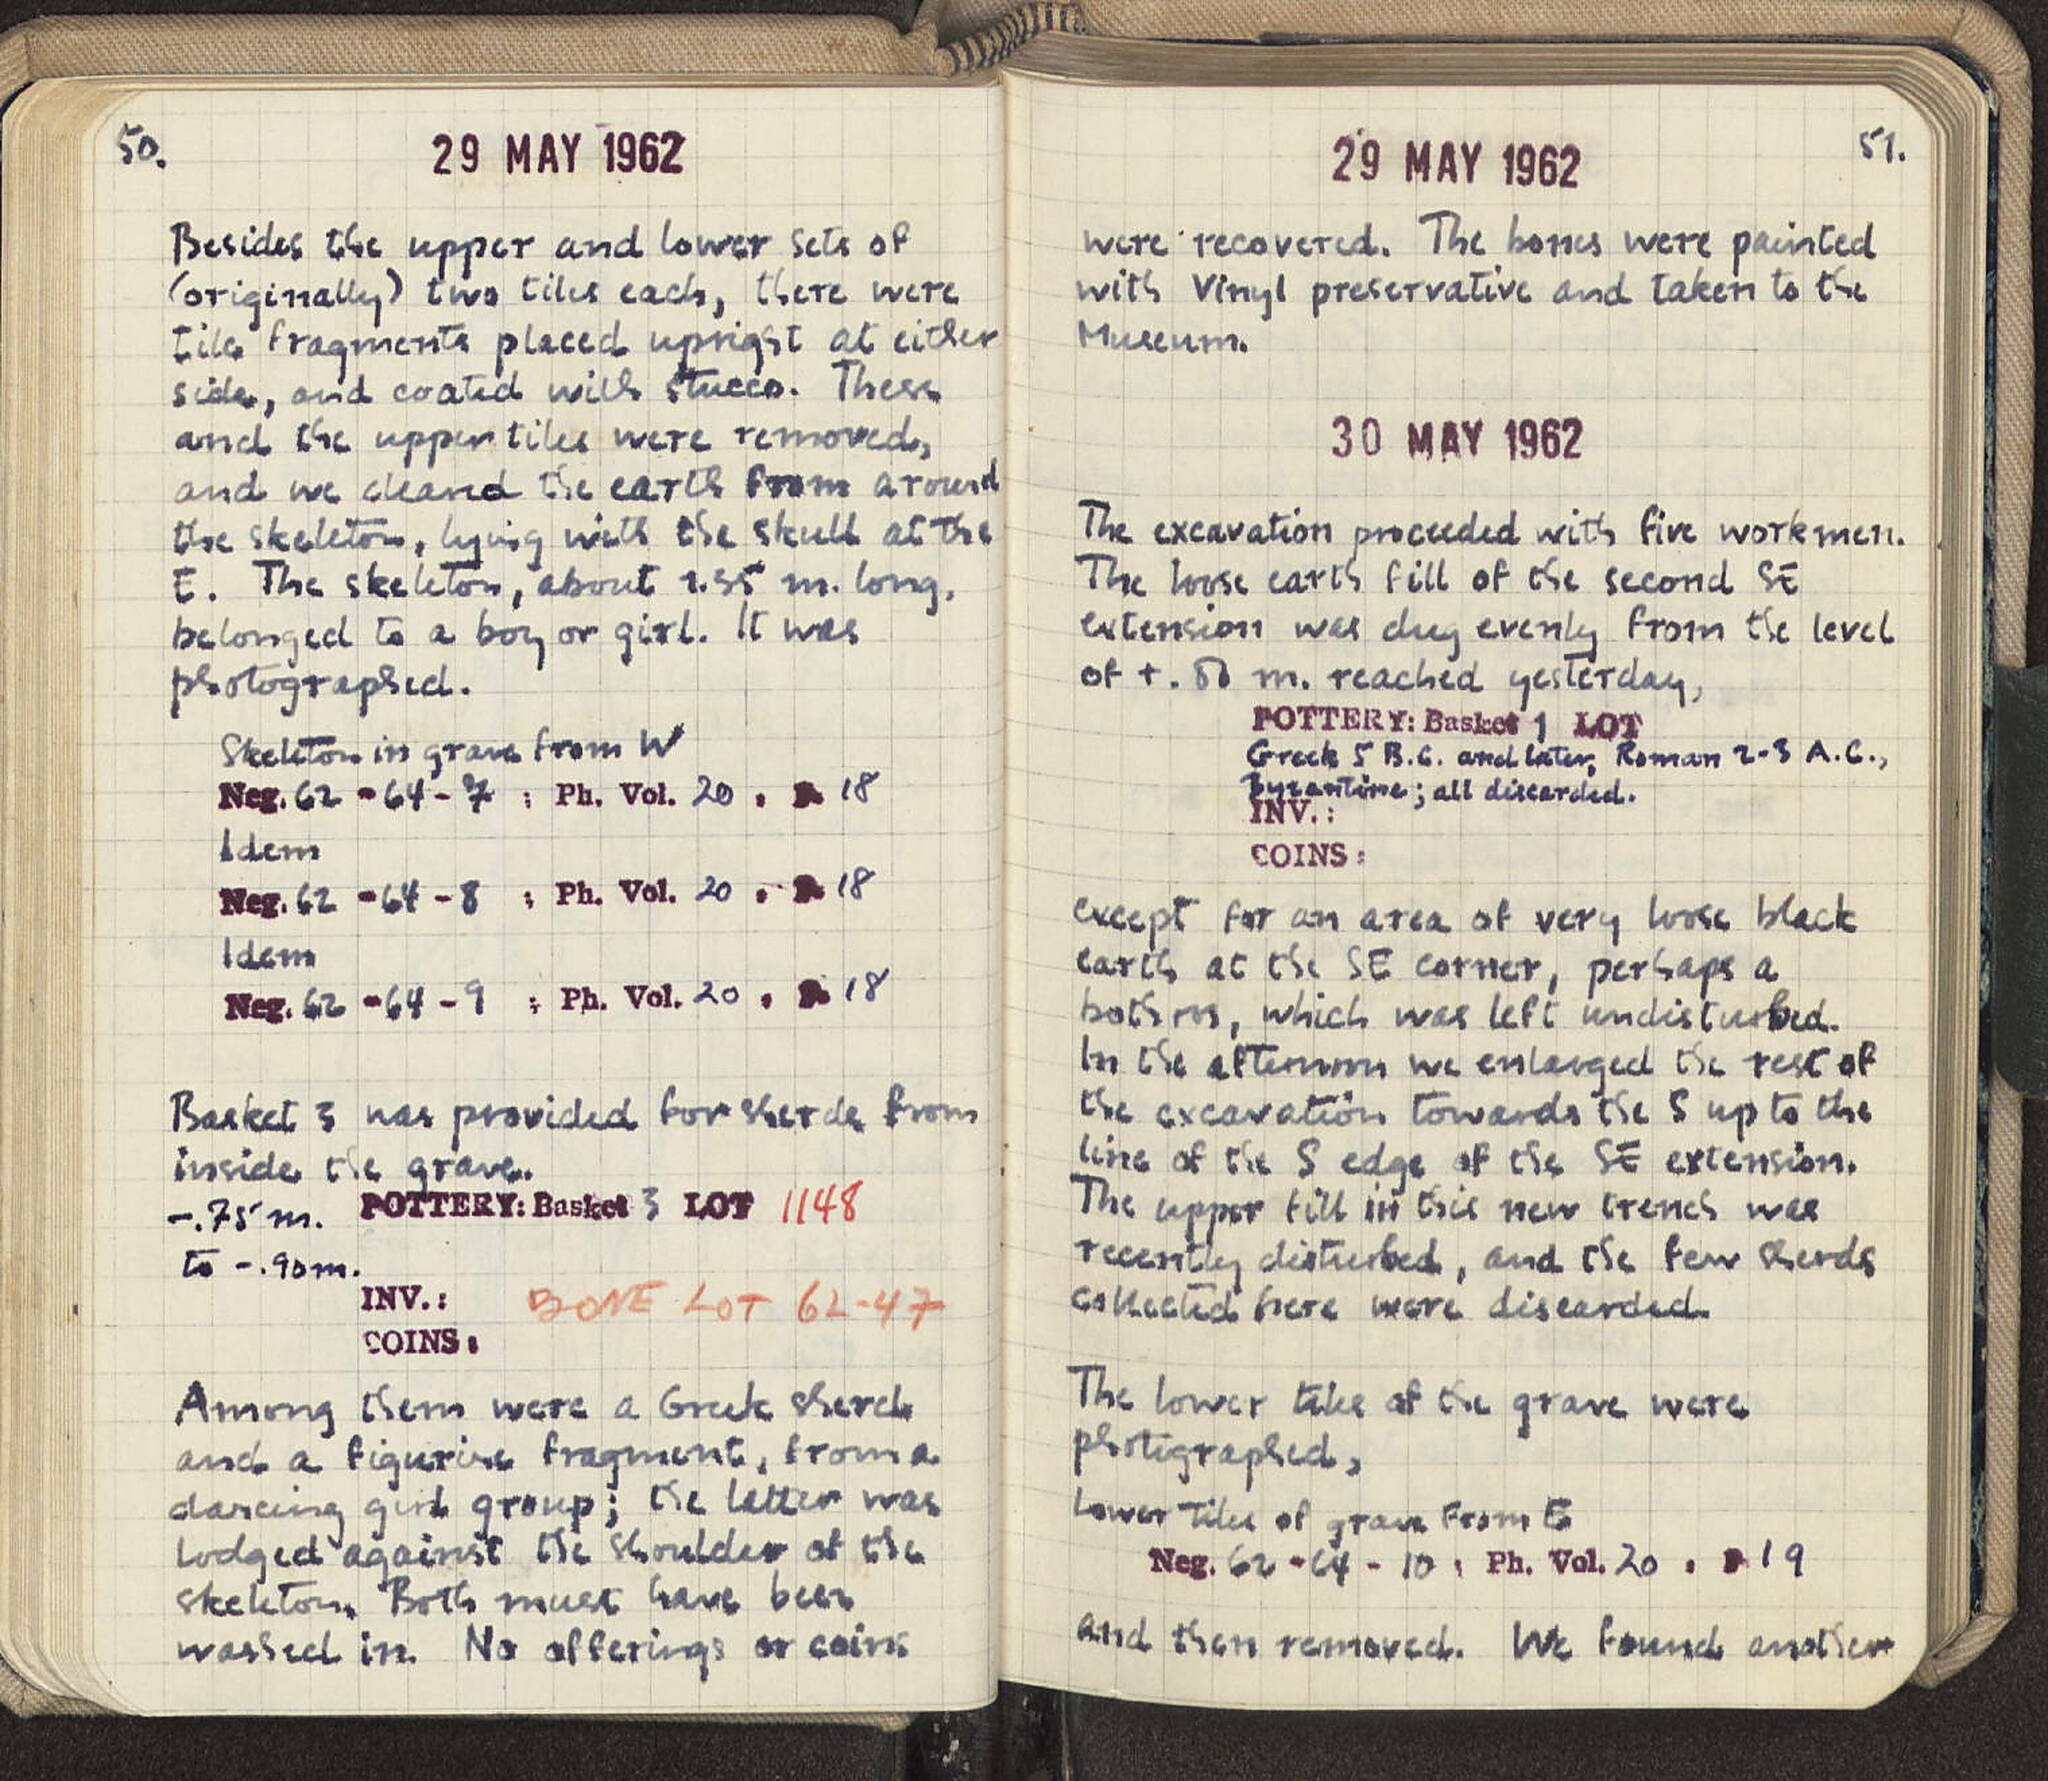 50.
29 MAY 1962
Besides the upper and lower sets of
(originally) two tiles each, there were
tile fragments placed upright at either
side, and coated with stucco. These
and the upper tiles were removed,
and we cleaned the earth from around
the skeleton, lying with the skull at the
E. The skeleton, about 1.35 m. long,
belonged to a boy or girl. It was
photographed.
Skeleton in grave from W
Neg. 62-64-7 ; Ph. Vol. 20 . P. 18
Idem
Neg. 62-64-8 ; Ph. Vol. 20 . P. 18
Idem
Neg. 62-64-9 ; Ph. Vol. 20 . P. 18
Basket 3 was provided for sherds from
inside the grave.
-.75 m. POTTERY: Basket 3 LOT 1148
to -.90m.
INV.: BONE LOT 62-47
COINS:
Among them were a Greek sherd
and a figurine fragment, from a
dancing girl group; the latter was
lodged against the shoulder of the
skeleton. Both must have been
washed in. No offerings or coins
29 MAY 1962
51.
were recovered. The bones were painted
with Vinyl preservative and taken to the
Museum.
30 MAY 1962
The excavation proceeded with five workmen.
The loose earth fill of the second SE
extension was dug evenly from the level
of m. reached yesterday,
POTTERY: Basket 1 LOT
Greek 5 B.C. and later, Roman 2-3 A.C.,
Byzantine; all discarded.
INV.:
COINS:
except for an area of very loose black
earth at the SE corner, perhaps a
bothros, which was left undisturbed.
In the afternoon we enlarged the rest of
the excavation towards the S up to the
line of the S edge of the SE extension.
The upper fill in this new trench was
recently disturbed, and the few sherds
collected here were discarded.
The lower tiles of the grave were
photographed,
Lower tiles of grave from E
Neg. 62-64-10 ; Ph. Vol. 20 . P. 19
and then removed. We found another